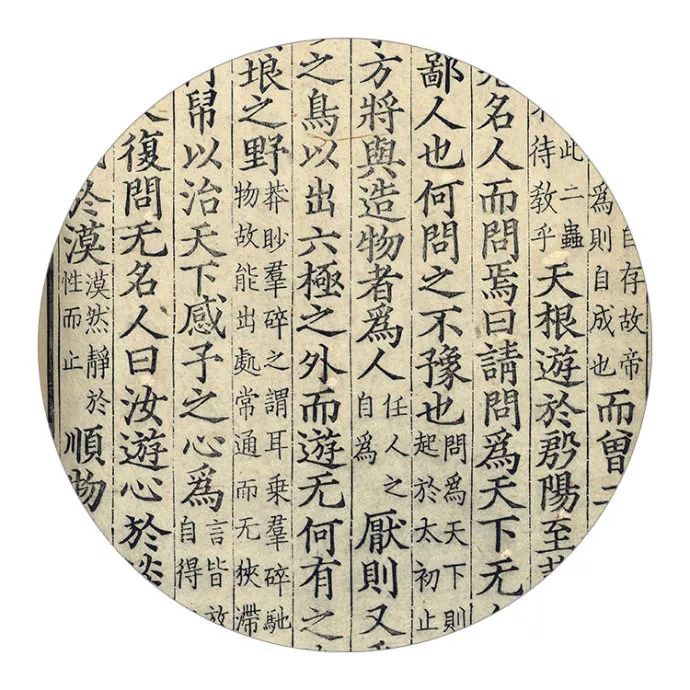 自存故帝
爲則自成也
而曾
此二蟲
待教乎
天根遊於殷陽至
名人而問焉曰請問爲天下无
鄙人也何問之不豫也
問爲天下則
起於太初止
方將與造物者爲人
任人之
自爲
厭則又
之鳥以出六極之外而遊无何有之
埌之野
莽眇羣碎之謂耳乘羣碎馳
物故能出處常通而无狹滯
帠以治天下感予之心爲
言皆放
自得
復問无名人曰汝遊心於淡
於漠
漠然靜於
性而止
順物